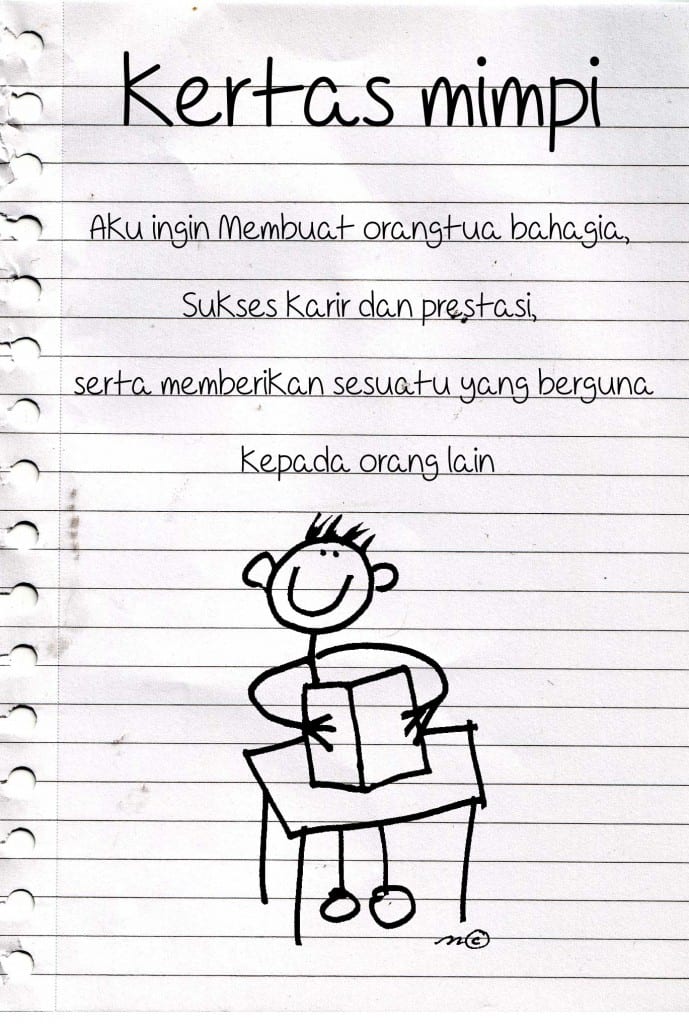 Kertas mimpi
Aku ingin Membuat orangtua bahagia,
Sukses Karir dan prestasi,
serta memberikan sesuatu yang berguna
Kepada orang lain